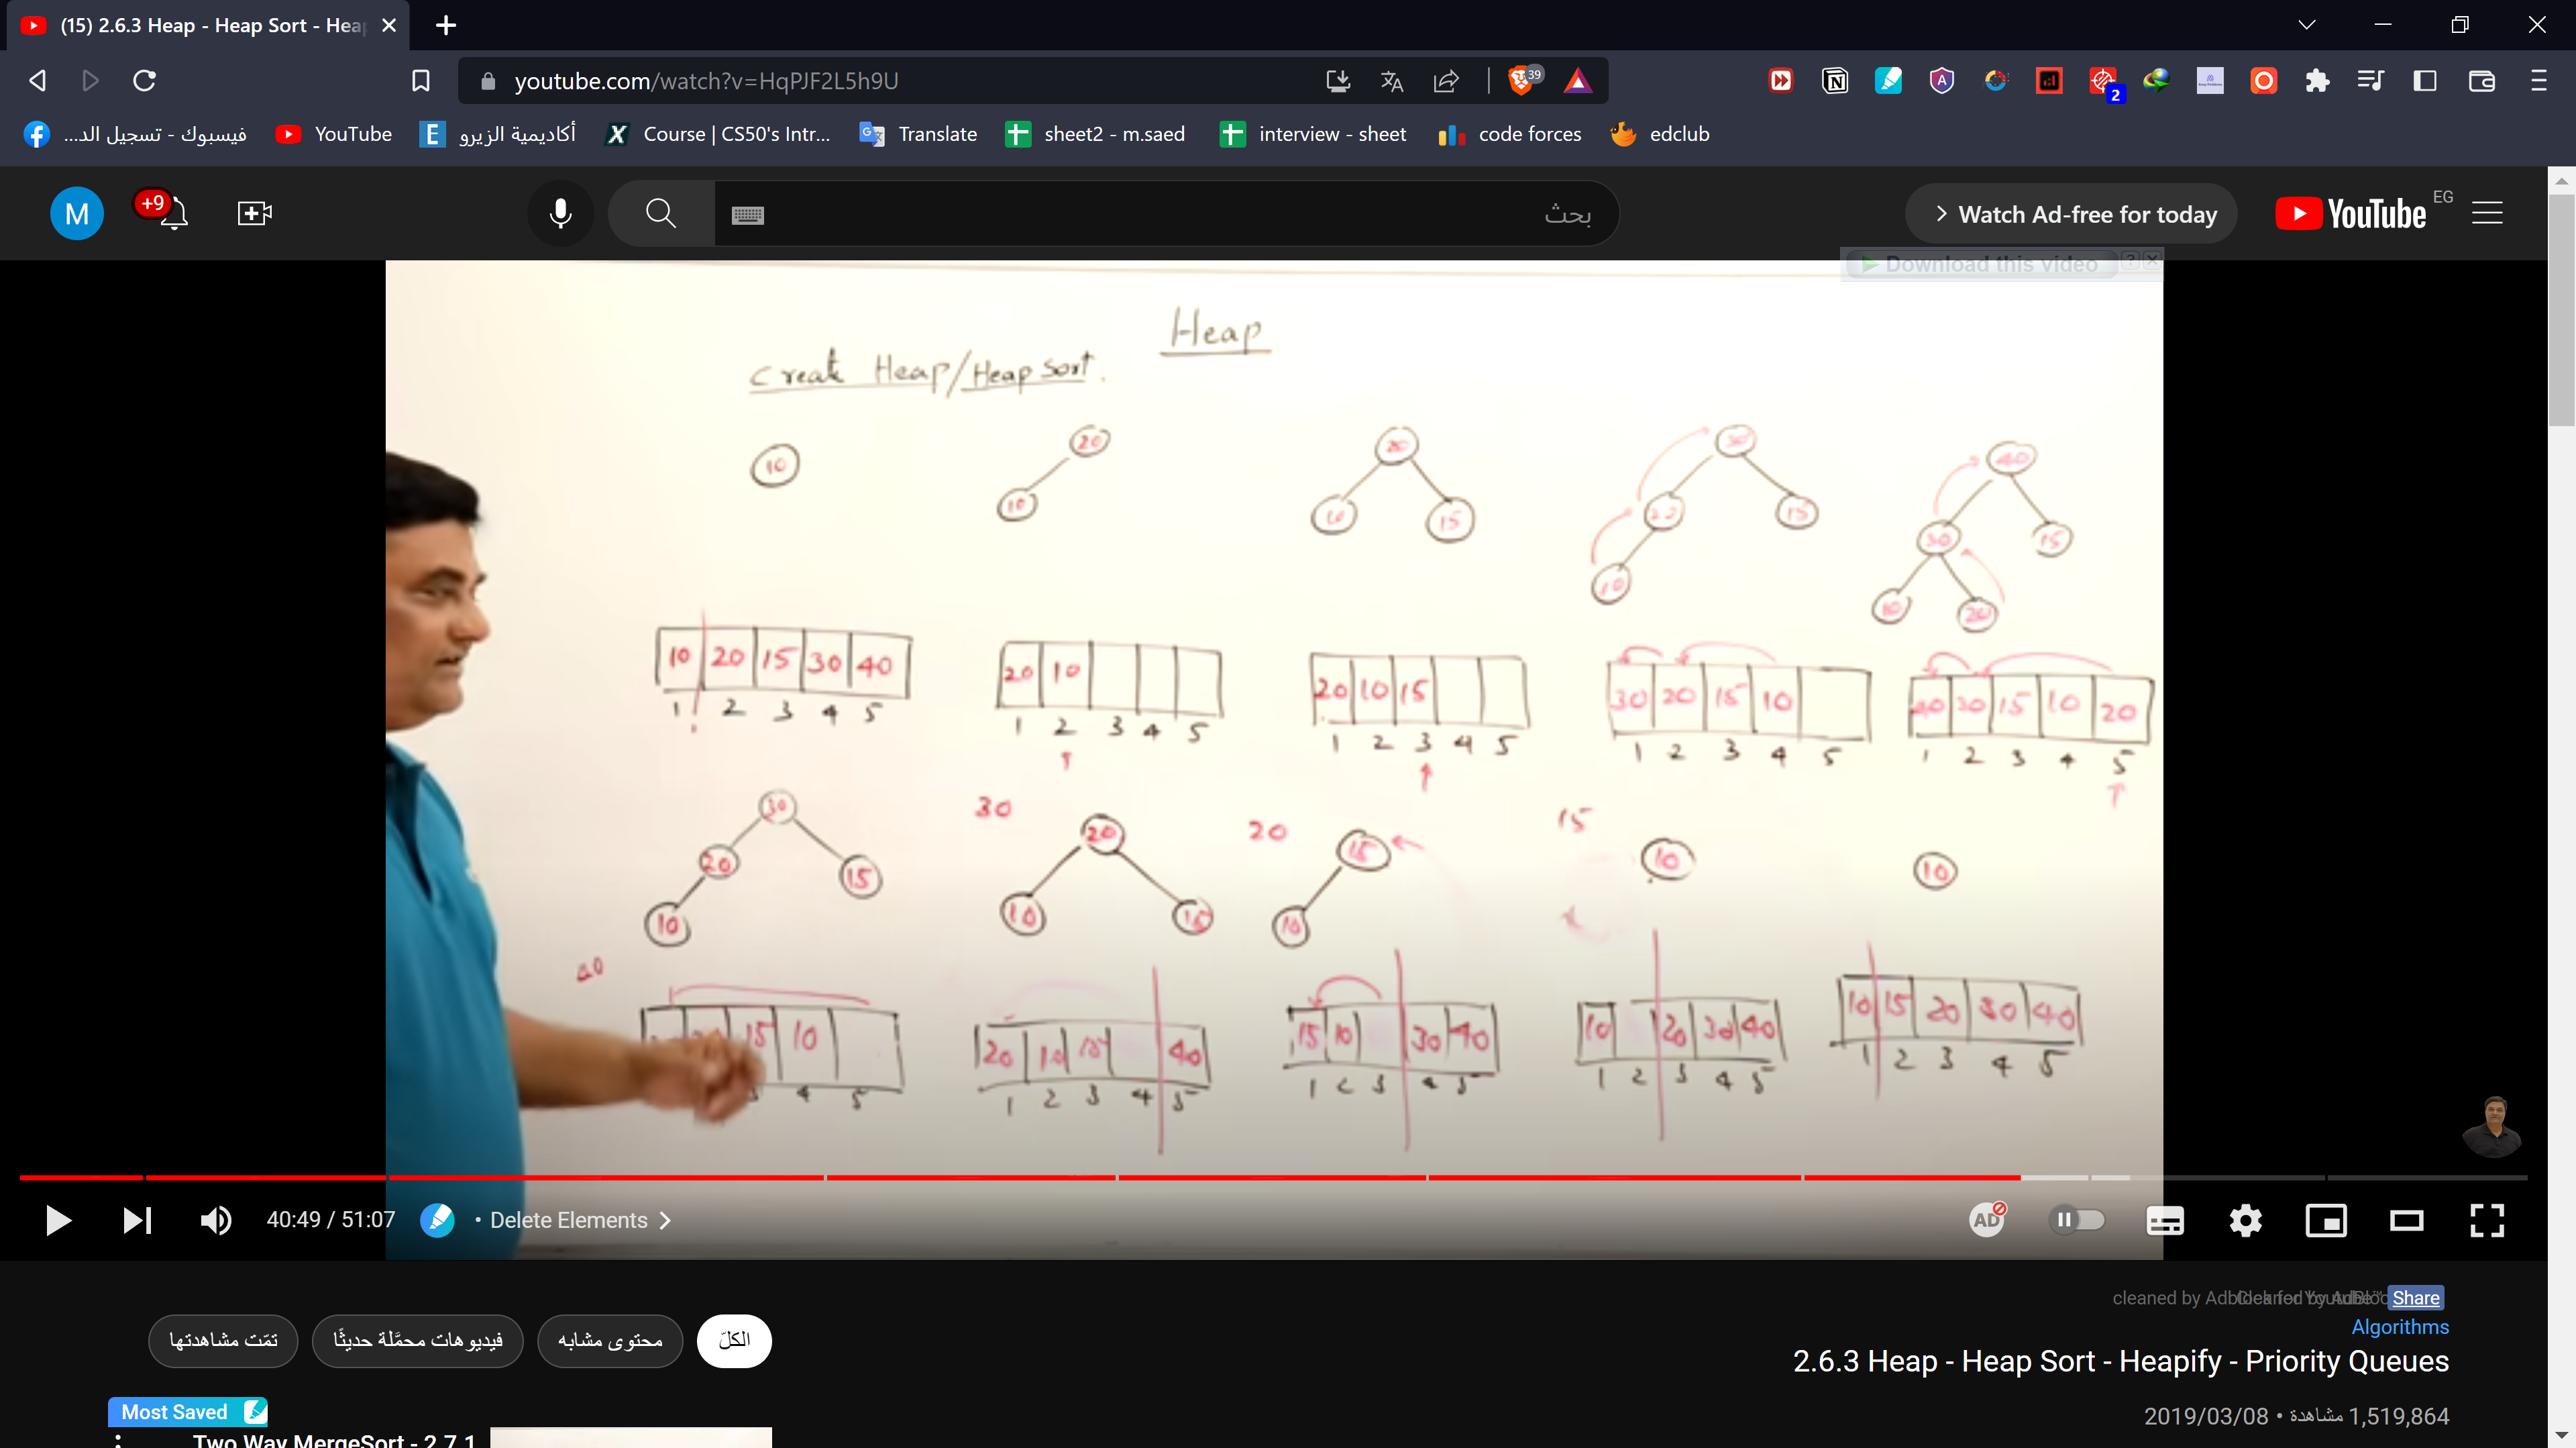 (15) 2.6.3 Heap - Heap Sort - Hea
youtube.com/watch?v=HqPJF2L5h9U
39
2
فيسبوك - تسجيل الد...
YouTube
أكاديمية الزيرو
Course | CS50's Intr...
Translate
sheet2 - m.saed
interview - sheet
code forces
edclub
M
+9
بحث
Watch Ad-free for today
YouTube EG
Download this video
Heap
Create Heap/Heap Sort.
10
20
10
20
10 15
30
20 15
10
40
30 15
10 20
10 20 15 30 40
1 2 3 4 5
20 10
1 2 3 4 5
20 10 15
1 2 3 4 5
30 20 15 10
1 2 3 4 5
40 30 15 10 20
1 2 3 4 5
30
20 15
10
30
20
10 15
20
15
10
15
10
10
40
15 10
4 5
20 10 15 40
1 2 3 4 5
15 10 30 40
1 2 3 4 5
10 20 30 40
1 2 3 4 5
10 15 20 30 40
1 2 3 4 5
40:49 / 51:07
• Delete Elements
AD
Share
Algorithms
2.6.3 Heap - Heap Sort - Heapify - Priority Queues
1,519,864 مشاهدة • 2019/03/08
الكلّ
محتوى مشابه
فيديوهات محمَّلة حديثًا
تمّت مشاهدتها
Most Saved
Two Way MergeSort - 2.7.1